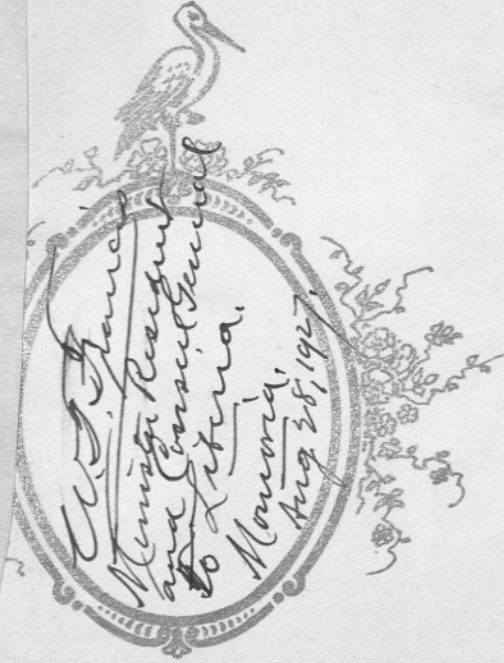 W. T. Francis
Minister Resident
and Consul General
to Liberia.
Monrovia.
Aug 28, 1927.